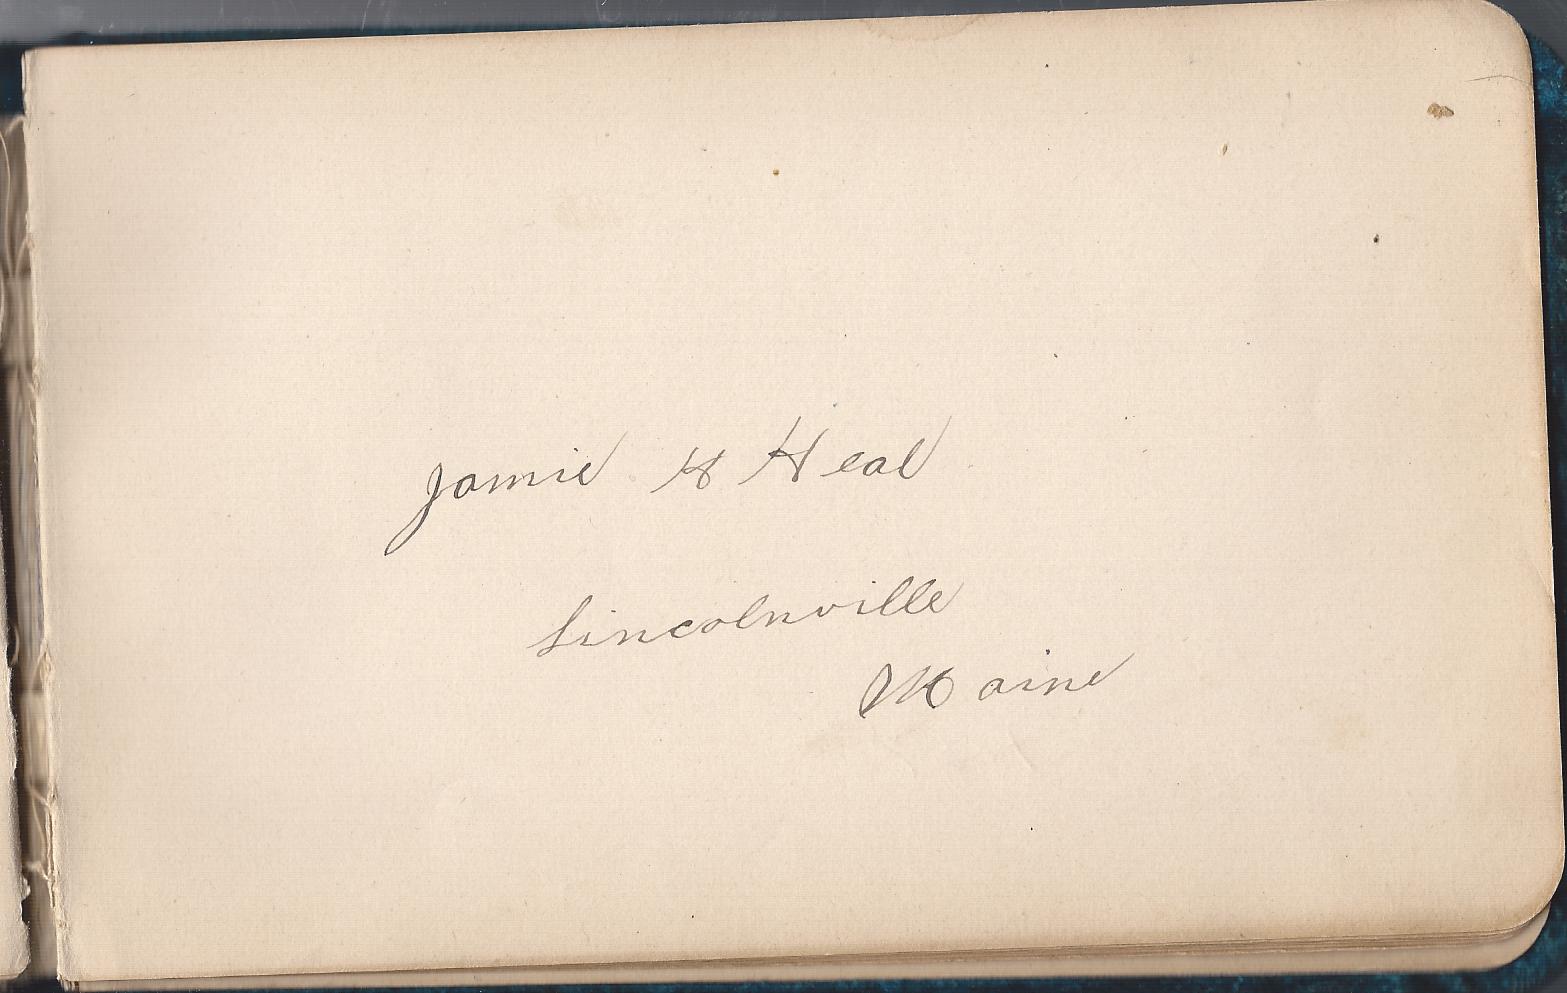 Jamie H Heal
Lincolnville
Maine